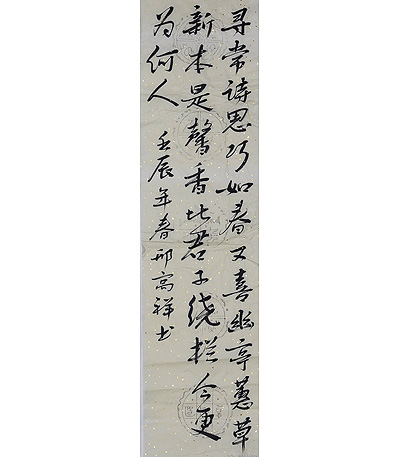 寻常诗思巧如春又喜幽亭蕙草
新本是馨香比君子绕栏今更
为何人
壬辰年春邢高祥书